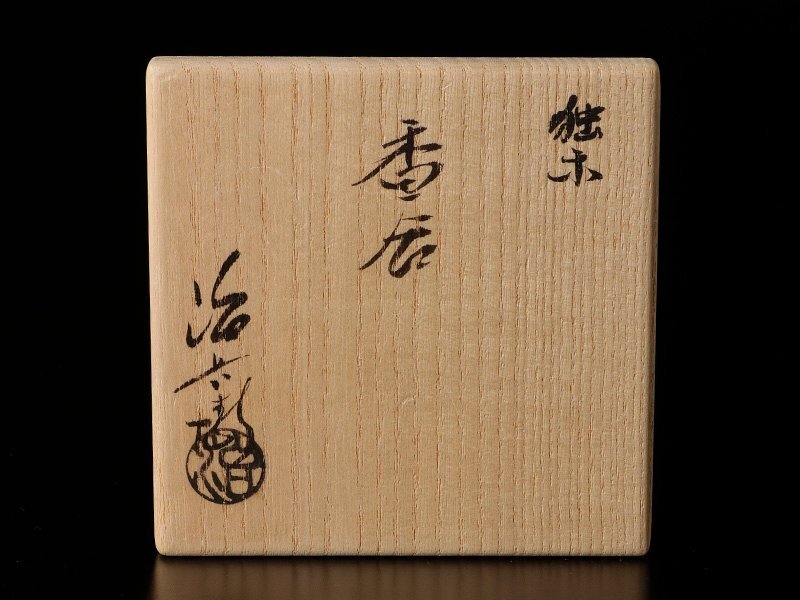 独楽
香合
治兵衛